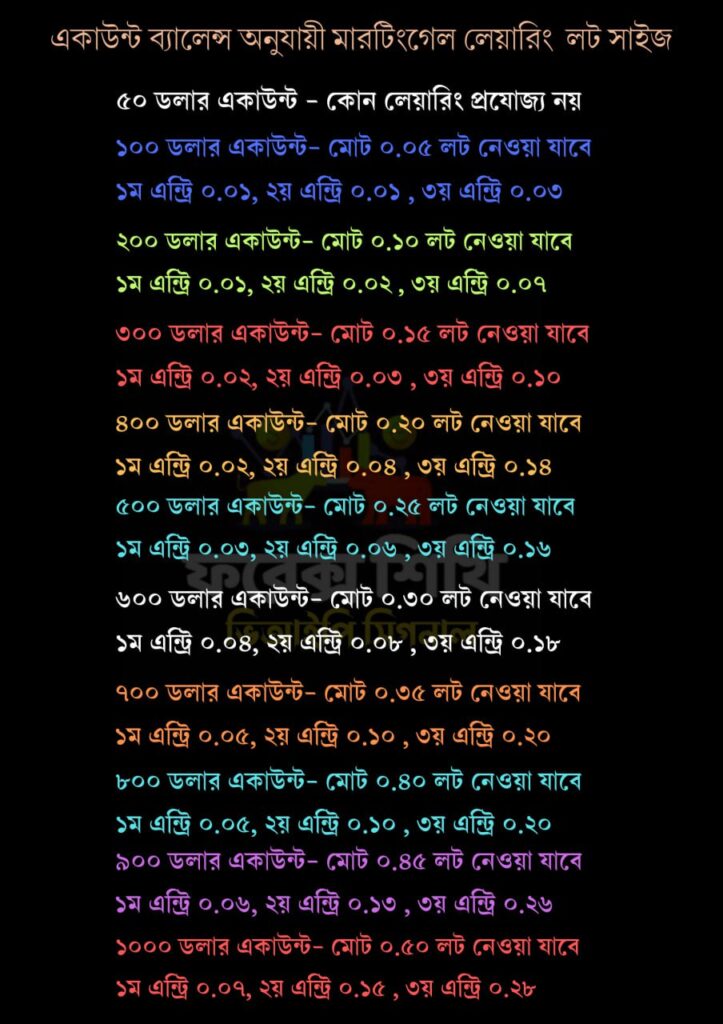 একাউন্ট ব্যালেন্স অনুযায়ী মারটিংগেল লেয়ারিং লট সাইজ
৫০ ডলার একাউন্ট - কোন লেয়ারিং প্রযোজ্য নয়
১০০ ডলার একাউন্ট- মোট ০.০৫ লট নেওয়া যাবে
১ম এন্ট্রি ০.০১, ২য় এন্ট্রি ০.০১ , ৩য় এন্ট্রি ০.০৩
২০০ ডলার একাউন্ট- মোট ০.১০ লট নেওয়া যাবে
১ম এন্ট্রি ০.০১, ২য় এন্ট্রি ০.০২ , ৩য় এন্ট্রি ০.০৭
৩০০ ডলার একাউন্ট- মোট ০.১৫ লট নেওয়া যাবে
১ম এন্ট্রি ০.০২, ২য় এন্ট্রি ০.০৩ , ৩য় এন্ট্রি ০.১০
৪০০ ডলার একাউন্ট- মোট ০.২০ লট নেওয়া যাবে
১ম এন্ট্রি ০.০২, ২য় এন্ট্রি ০.০৪ , ৩য় এন্ট্রি ০.১৪
৫০০ ডলার একাউন্ট- মোট ০.২৫ লট নেওয়া যাবে
১ম এন্ট্রি ০.০৩, ২য় এন্ট্রি ০.০৬ , ৩য় এন্ট্রি ০.১৬
ফরেক্স শিখি
৬০০ ডলার একাউন্ট- মোট ০.৩০ লট নেওয়া যাবে
ভিআইপি সিগনাল
১ম এন্ট্রি ০.০৪, ২য় এন্ট্রি ০.০৮ , ৩য় এন্ট্রি ০.১৮
৭০০ ডলার একাউন্ট- মোট ০.৩৫ লট নেওয়া যাবে
১ম এন্ট্রি ০.০৫, ২য় এন্ট্রি ০.১০ , ৩য় এন্ট্রি ০.২০
৮০০ ডলার একাউন্ট- মোট ০.৪০ লট নেওয়া যাবে
১ম এন্ট্রি ০.০৫, ২য় এন্ট্রি ০.১০ , ৩য় এন্ট্রি ০.২০
৯০০ ডলার একাউন্ট- মোট ০.৪৫ লট নেওয়া যাবে
১ম এন্ট্রি ০.০৬, ২য় এন্ট্রি ০.১৩ , ৩য় এন্ট্রি ০.২৬
১০০০ ডলার একাউন্ট- মোট ০.৫০ লট নেওয়া যাবে
১ম এন্ট্রি ০.০৭, ২য় এন্ট্রি ০.১৫ , ৩য় এন্ট্রি ০.২৮